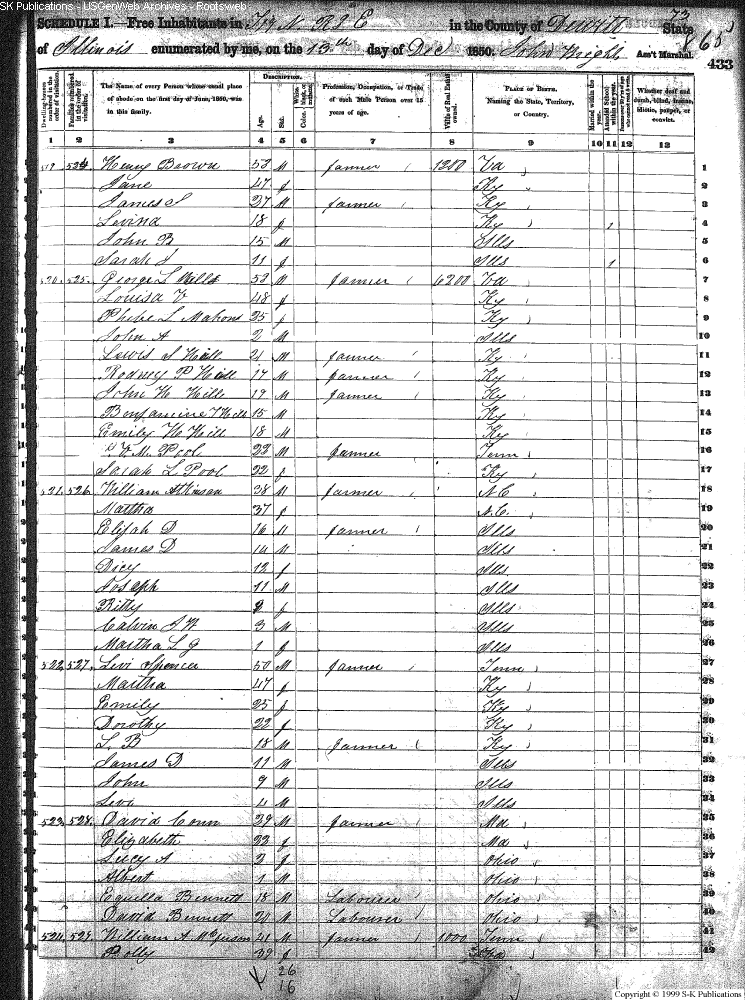 SK Publications - USGenWeb Archives - Rootsweb
SCHEDULE I.—Free Inhabitants in N R 2 E in the County of Dewitt State
of Illinois enumerated by me, on the 13th day of Dec 1850. John Wright Ass't Marshal. 433
Dwelling-houses numbered in the order of visitation. Families numbered in the order of visitation. The Name of every Person whose usual place of abode on the first day of June, 1850, was in this family. Description. Age. Sex. White, black, or mulatto. Color. Profession, Occupation, or Trade of each Male Person over 15 years of age. Value of Real Estate owned. Place of Birth. Naming the State, Territory, or Country. Married within the year. Attended School within the year. Persons over 20 y'rs of age who cannot read & write. Whether deaf and dumb, blind, insane, idiotic, pauper, or convict.
1 2 3 4 5 6 7 8 9 10 11 12 13
519 524 Henry Brown 53 M farmer 1200 Va 1
Jane 47 f Ky 2
James S 27 M farmer Ky 3
Levina 18 f Ky 1 4
John B 15 M Ills 5
Sarah J 11 f Ills 1 6
520 525 George L Hill 53 M farmer 6200 Va 7
Louisa V 48 f Ky 8
Phebe L 25 f Ky 9
John A 2 M Ills 10
Lewis S Hill 21 M farmer Ky 11
Rodney P Hill 17 M farmer Ky 12
John H Hill 19 M farmer Ky 13
Benjamine Hill 15 M Ky 14
Emily H Hill 18 Ky 15
M. Pool 23 M farmer Tenn 16
Sarah L Pool 22 f Ky 17
521 526 William Atkinson 38 M farmer N.C. 18
Martha 37 f N.C. 19
Elijah D 16 M farmer Ills 20
James D M Ills 21
Dicy 12 f Ills 22
Joseph 11 M Ills 23
Kitty f Ills 24
Calvin J W 3 M Ills 25
Martha L J 1 f Ills 26
522 527 Levi Spencer 50 M farmer Tenn 27
Martha 47 f Ky 28
Emily 25 f Ky 29
Dorothy 22 f Ky 30
L. B 18 M farmer Ky 31
James D 11 M Ills 32
John 9 M Ills 33
Levi 4 M Ills 34
523 528 David Conn 29 M farmer Md 35
Elizabeth 33 f Md 36
Lucy A 2 f Ohio 37
Albert 1 M Ohio 38
Equilla Bennett 18 M Labourer Ohio 39
David Bennett 20 M Labourer Ohio 40
524 529 William A 41 M farmer 1000 Tenn 41
Polly 39 f 42
26
16
Copyright © 1999 S-K Publications